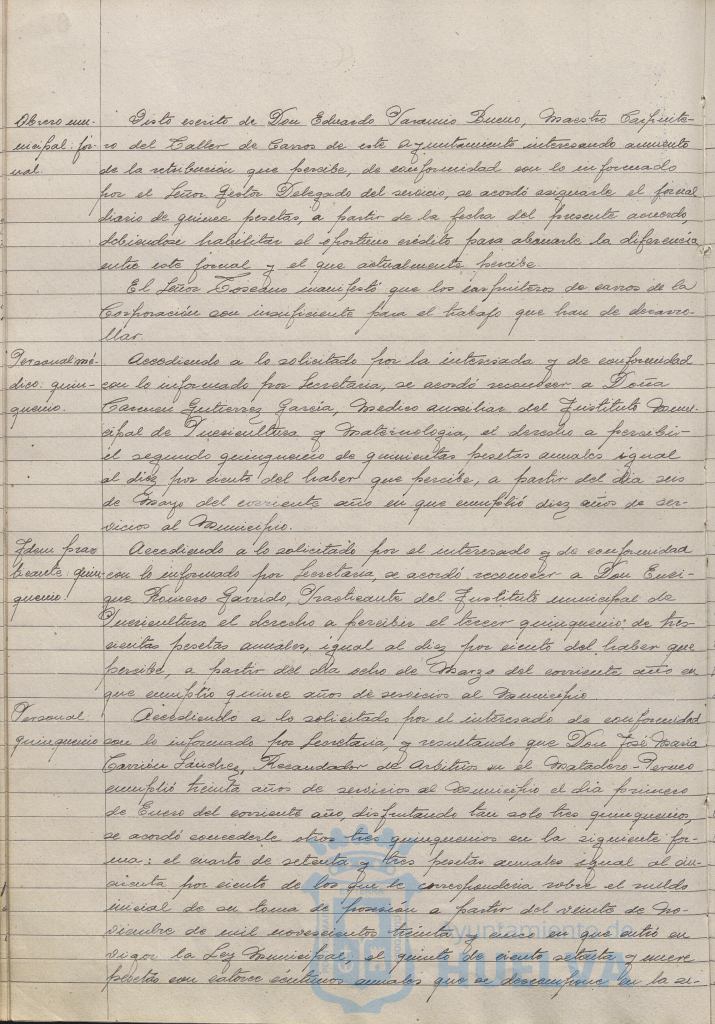 Obrero mu-
nicipal: jor-
nal.
Visto escrito de Don Eduardo Taramio Bueno, Maestro Carpinte-
ro del Taller de Carros de este Ayuntamiento interesando aumento
de la retribución que percibe, de conformidad con lo informado
por el Señor Gestor Delegado del servicio, se acordó asignarle el jornal
diario de quince pesetas, a partir de la fecha del presente acuerdo,
debiendose habilitar el oportuno crédito para abonarle la diferencia
entre este jornal y el que actualmente percibe.
El Señor Toscano manifestó que los carpinteros de carros de la
Corporación son insuficiente para el trabajo que han de desarro-
llar.
Personal mé-
dico: quin-
quenio.
Accediendo a lo solicitado por la interesada y de conformidad
con lo informado por Secretaría, se acordó reconocer a Doña
Carmen Gutierrez García, Medico auxiliar del Instituto Muni-
cipal de Puericultura y Maternologia, el derecho a percibir
el segundo quinquenio de quinientas pesetas anuales igual
al diez por ciento del haber que percibe, a partir del dia seis
de Mayo del corriente año en que cumplió diez años de ser-
vicios al Municipio.
Idem prac
ticante: quin-
quenio.
Accediendo a lo solicitado por el interesado y de conformidad
con lo informado por Secretaría, se acordó reconocer a Don Enri-
que Romero Garrido, Practicante del Instituto municipal de
Puericultura el derecho a percibir el tercer quinquenio de tres-
cientas pesetas anuales, igual al diez por ciento del haber que
percibe, a partir del dia ocho de Marzo del corriente año en
que cumplio quince años de servicios al Municipio.
Personal
quinquenio
Accediendo a lo solicitado por el interesado de conformidad
con lo informado por Secretaria, y resultando que Don José María
Carrión Sánchez, Recaudador de Arbitrios en el Matadero-Perneo
cumplió treinta años de servicios al Municipio el dia primero
de Enero del corriente año, disfrutando tan solo tres quinquenios,
se acordó concederle otros tres quinquenios en la siguiente for-
ma: el cuarto de setenta y tres pesetas anuales igual al cin-
cuenta por ciento de los que le correspondería sobre el sueldo
inicial de su toma de posesión a partir del veinte de No-
viembre de mil novescientos treinta y cinco en que entró en
vigor la Ley Municipal; el quinto de ciento setenta y nueve
pesetas con catorce céntimos anuales que se descompone en la si-
ayuntamiento de
HUELVA